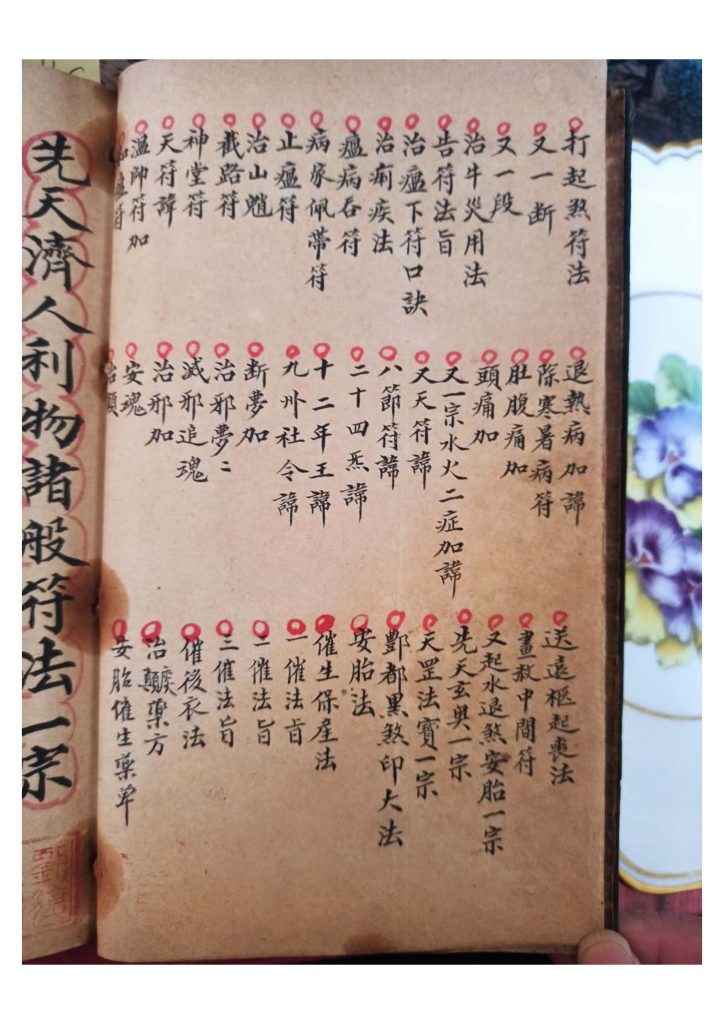 打起煞符法
又一断
又一段
治牛災用法
告符法旨
治瘟下符口訣
治痢疾法
瘟病吞符
病家佩帶符
止瘟符
治山魈
截路符
神堂符
天符諱
溫帥符加
瘟符
退熱病加諱
除寒暑病符
肚腹痛加
頭痛加
又一宗水火二症加諱
又天符諱
八節符諱
二十四炁諱
十二年王諱
九州社令諱
断夢加
治邪夢〻
滅邪追魂
治邪加
安魂
送遠柩起喪法
畫赦中間符
又起水退煞安胎一宗
先天玄奥一宗
天罡法寶一宗
酆都黑煞印大法
安胎法
催生保産法
一催法旨
二催法旨
三催法旨
催後衣法
治藥方
安胎催生藥单
先天濟人利物諸般符法一宗